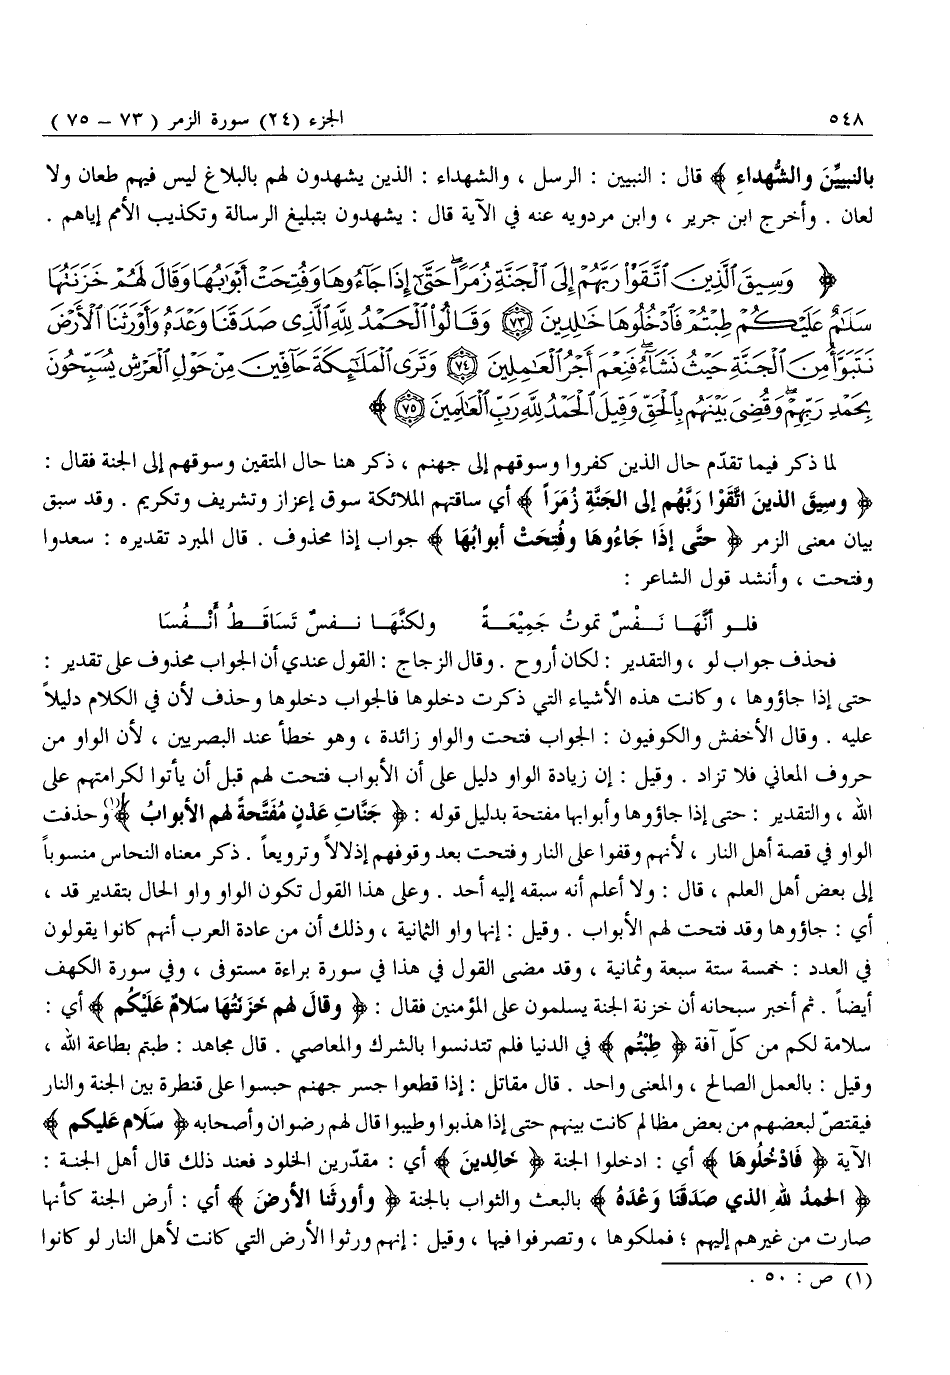 ٥٤٨ الجزء (٢٤) سورة الزمر ( ٧٣ – ٧٥ )
بالنبيِّنَ والشُّهداءِ ﴾ قال : النبيين : الرسل ، والشهداء : الذين يشهدون لهم بالبلاغ ليس فيهم طعان ولا
لعان . وأخرج ابن جرير ، وابن مردويه عنه في الآية قال : يشهدون بتبليغ الرسالة وتكذيب الأمم إياهم .
﴿ وَسِيقَ ٱلَّذِينَ ٱتَّقَوْا۟ رَبَّهُمْ إِلَى ٱلْجَنَّةِ زُمَرًا ۖ حَتَّىٰٓ إِذَا جَآءُوهَا وَفُتِحَتْ أَبْوَٰبُهَا وَقَالَ لَهُمْ خَزَنَتُهَا
سَلَٰمٌ عَلَيْكُمْ طِبْتُمْ فَٱدْخُلُوهَا خَٰلِدِينَ ٧٣ وَقَالُوا۟ ٱلْحَمْدُ لِلَّهِ ٱلَّذِى صَدَقَنَا وَعْدَهُۥ وَأَوْرَثَنَا ٱلْأَرْضَ
نَتَبَوَّأُ مِنَ ٱلْجَنَّةِ حَيْثُ نَشَآءُ ۖ فَنِعْمَ أَجْرُ ٱلْعَٰمِلِينَ ٧٤ وَتَرَى ٱلْمَلَٰٓئِكَةَ حَآفِّينَ مِنْ حَوْلِ ٱلْعَرْشِ يُسَبِّحُونَ
بِحَمْدِ رَبِّهِمْ ۖ وَقُضِىَ بَيْنَهُم بِٱلْحَقِّ وَقِيلَ ٱلْحَمْدُ لِلَّهِ رَبِّ ٱلْعَٰلَمِينَ ٧٥ ﴾
لما ذكر فيما تقدّم حال الذين كفروا وسوقهم إلى جهنم ، ذكر هنا حال المتقين وسوقهم إلى الجنة فقال :
﴿ وسِيقَ الذينَ اتَّقَوْا رَبَّهُم إلى الجَنَّةِ زُمَرَاً ﴾ أي ساقتهم الملائكة سوق إعزاز وتشريف وتكريم . وقد سبق
بيان معنى الزمر ﴿ حتَّى إذَا جَاءُوهَا وفُتِحَتْ أبوابُهَا ﴾ جواب إذا محذوف . قال المبرد تقديره : سعدوا
وفتحت ، وأنشد قول الشاعر :
فلو أنَّهَا نَفْسٌ تموتُ جَمِيْعَةً ولكنَّهَا نفسٌ تَسَاقَطُ أَنْفُسَا
فحذف جواب لو ، والتقدير : لكان أروح . وقال الزجاج : القول عندي أن الجواب محذوف على تقدير :
حتى إذا جاؤوها ، وكانت هذه الأشياء التي ذكرت دخلوها فالجواب دخلوها وحذف لأن في الكلام دليلاً
عليه . وقال الأخفش والكوفيون : الجواب فتحت والواو زائدة ، وهو خطأ عند البصريين ، لأن الواو من
حروف المعاني فلا تزاد . وقيل : إن زيادة الواو دليل على أن الأبواب فتحت لهم قبل أن يأتوا لكرامتهم على
الله ، والتقدير : حتى إذا جاؤوها وأبوابها مفتحة بدليل قوله : ﴿ جَنَّاتِ عَدْنٍ مُفَتَّحةً لهم الأبوابُ ﴾(١) وحذفت
الواو في قصة أهل النار ، لأنهم وقفوا على النار وفتحت بعد وقوفهم إذلالاً وترويعاً . ذكر معناه النحاس منسوباً
إلى بعض أهل العلم ، قال : ولا أعلم أنه سبقه إليه أحد . وعلى هذا القول تكون الواو واو الحال بتقدير قد ،
أي : جاؤوها وقد فتحت لهم الأبواب . وقيل : إنها واو الثمانية ، وذلك أن من عادة العرب أنهم كانوا يقولون
في العدد : خمسة ستة سبعة وثمانية ، وقد مضى القول في هذا في سورة براءة مستوفى ، وفي سورة الكهف
أيضاً . ثم أخبر سبحانه أن خزنة الجنة يسلمون على المؤمنين فقال : ﴿ وقالَ لهم خَزَنَتُهَا سَلامٌ عَلَيْكُم ﴾ أي :
سلامة لكم من كلّ آفة ﴿ طِبْتُم ﴾ في الدنيا فلم تتدنسوا بالشرك والمعاصي . قال مجاهد : طبتم بطاعة الله ،
وقيل : بالعمل الصالح ، والمعنى واحد . قال مقاتل : إذا قطعوا جسر جهنم حبسوا على قنطرة بين الجنة والنار
فيقتصّ لبعضهم من بعض مظالم كانت بينهم حتى إذا هذبوا وطيبوا قال لهم رضوان وأصحابه ﴿ سَلَام عَليكم ﴾
الآية ﴿ فَادْخُلُوهَا ﴾ أي : ادخلوا الجنة ﴿ خَالِدينَ ﴾ أي : مقدّرين الخلود فعند ذلك قال أهل الجنة :
﴿ الحمدُ للهِ الذي صَدَقَنَا وَعْدَهُ ﴾ بالبعث والثواب بالجنة ﴿ وأورثَنا الأرضَ ﴾ أي : أرض الجنة كأنها
صارت من غيرهم إليهم ؛ فملكوها ، وتصرفوا فيها ، وقيل : إنهم ورثوا الأرض التي كانت لأهل النار لو كانوا
(١) ص : ٥٠ .